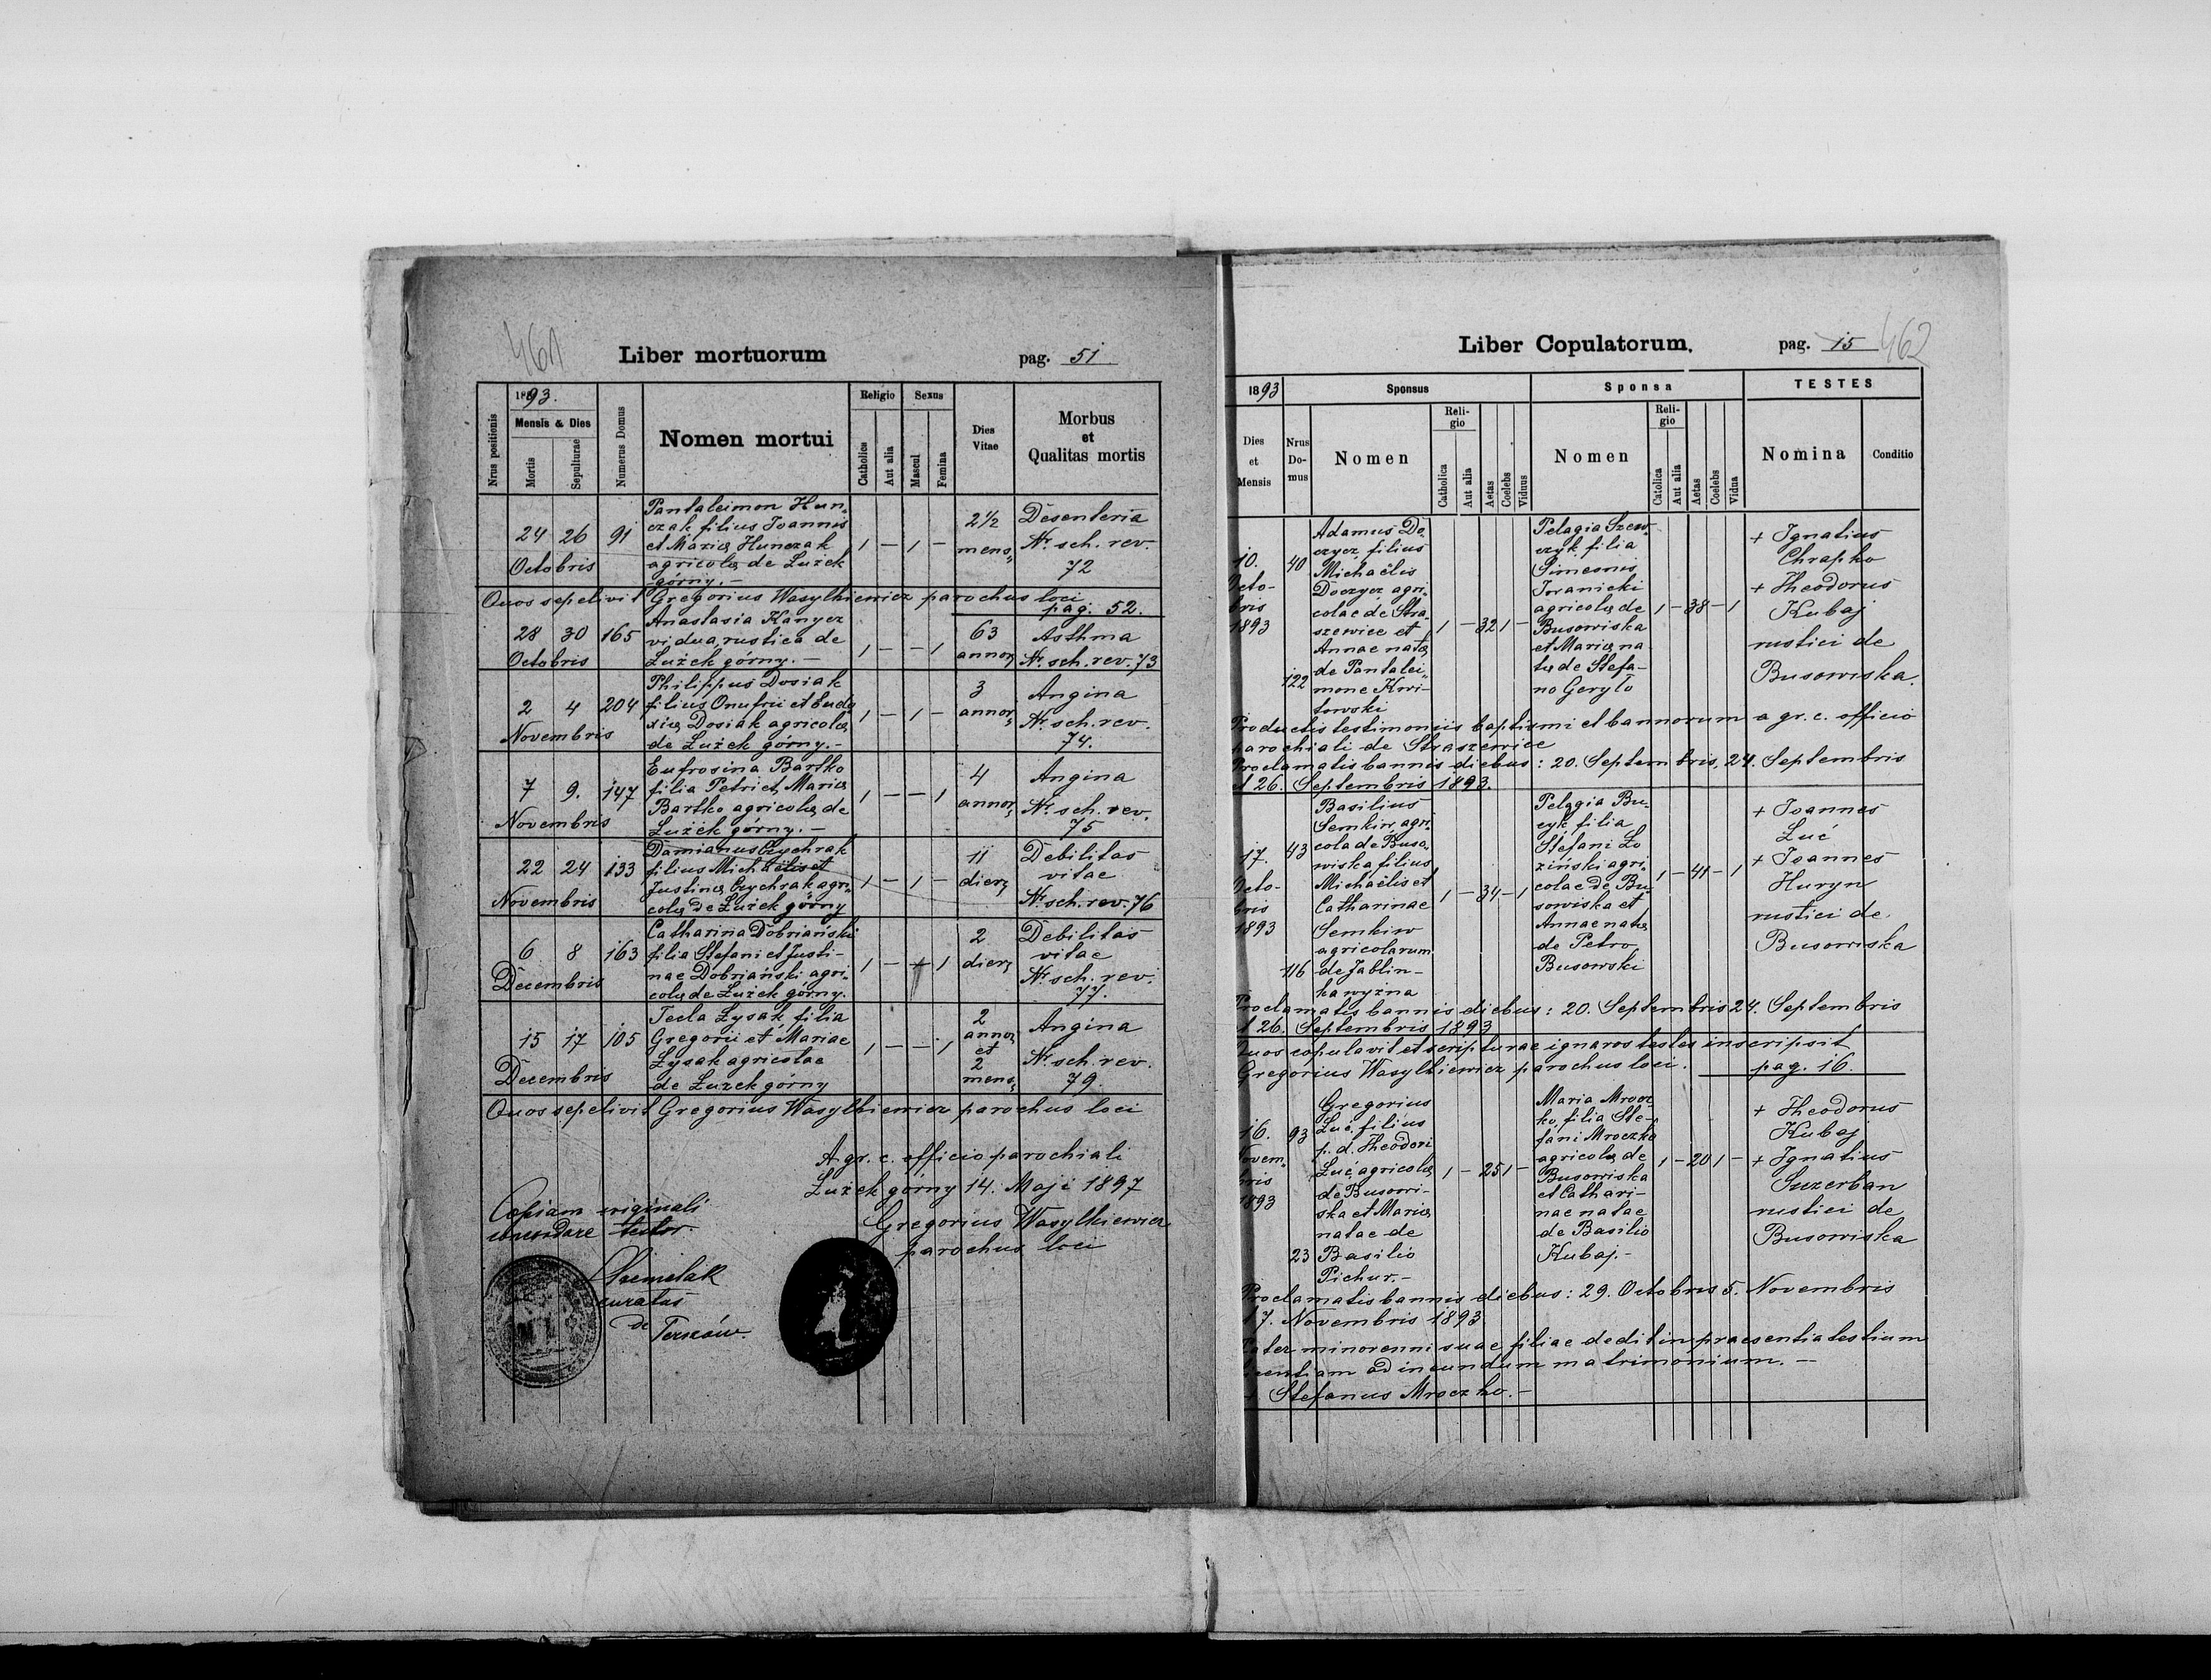 461
Liber mortuorum
pag. 51
1893.
Nrus positionis
Mensis & Dies
Mortis
Sepulturae
Numerus Domus
Nomen mortui
Religio
Catholica
Aut alia
Sexus
Mascul
Femina
Dies
Vitae
Morbus
et
Qualitas mortis
24 26 91
Octobris
Pantaleimon Hun-
czak filius Joannis
et Mariae Hunczak
agricolae de Łużek
górny. -
1 - 1 -
2 1/2
mens.
Desenteria
Nr. sch. rev.
72
Quos sepelivit Gregorius Wasylkiewicz parochus loci
pag. 52.
28 30 165
Octobris
Anastasia Kanycz
vidua, rustica de
Łużek górny. -
1 - - 1
63
annor.
Asthma
Nr. sch. rev. 73
2 4 204
Novembris
Philippus Dosiak
filius Onufrii et Eudo
xiae Dosiak agricolae
de Łużek górny. -
1 - 1 -
3
annor.
Angina
Nr. sch. rev.
74.
7 9. 147
Novembris
Eufrosina Bartko
filia Petri et Mariae
Bartko agricolae de
Łużek górny. -
1 - - 1
4
annor.
Angina
Nr. sch. rev.
75
22 24 133
Novembris
Damianus Czychrak
filius Michaëlis et
Justinae Czychrak agri-
colae de Łużek górny
1 - 1 -
11
dier.
Debilitas
vitae
Nr. sch. rev. 76
6 8 163
Decembris
Catharina Dobriański
filia Stefani et Justi-
nae Dobriański agri-
colae de Łużek górny.
1 - + 1
2
dier.
Debilitas
vitae
Nr. sch. rev.
77.
15 17 105
Decembris
Tecla Łysak, filia
Gregorii et Mariae
Łysak agricolae
de Łużek górny
1 - - 1
2
annor.
et
2
mens.
Angina
Nr. sch. rev.
79.
Quos sepelivit Gregorius Wasylkiewicz parochus loci
A gr. c. officio parochiali
Łużek górny 14. Maji 1897
Gregorius Wasylkiewicz
parochus loci
Copiam originali
concordare testor.
curatus
de Terszów.
462
Liber Copulatorum.
pag. 15
1893
Sponsus
Sponsa
TESTES
Dies
et
Mensis
Nrus
Do-
mus
Nomen
Reli-
gio
Catholica
Aut alia
Aetas
Coelebs
Viduus
Nomen
Reli-
gio
Catolica
Aut alia
Aetas
Coelebs
Vidua
Nomina
Conditio
10.
Octo-
bris
1893
40
122
Adamus Do-
czycz, filius
Michaëlis
Doczycz agri-
colae de Stra-
szewice et
Annae natae
de Pantalei-
mone Kwi-
towski
1 - 32 1 -
Pelagia Szew-
czyk filia
Simeonis
Iwanicki
agricolae de
Busowiska
et Mariae na-
tae de Stefa-
no Gerylo
1 - 38 - 1
+ Ignatius
Chrapko
+ Theodorus
Kubaj
rustici de
Busowiska.
Productis testimoniis baptismi et bannorum a gr. c. officio
parochiali de Straszewice
Proclamatis bannis diebus: 20. Septembris, 24. Septembris
et 26. Septembris 1893.
17.
Octo-
bris
1893
43
116
Basilius
Semkiw, agri-
cola de Buso-
wiska filius
Michaëlis et
Catharinae
Semkiw
agricolarum
de Jablin-
ka wyżna
1 - 34 - 1
Pelagia Bu-
cyk filia
Stefani Lo
ziński agri-
colae de Bu-
sowiska et
Annae natae
de Petro
Busowski
1 - 41 - 1
+ Joannes
Luć
+ Joannes
Huryn
rustici de
Busowiska
Proclamatis bannis diebus: 20. Septembris 24. Septembris
et 26. Septembris 1893
Quos copulavit et scripturae ignaros testes inscripsit
Gregorius Wasylkiewicz parochus loci.
pag. 16.
16.
Novem-
bris
1893
93
23
Gregorius
Luć, filius
p. d. Theodori
Luć, agricolae
de Busowi-
ska et Mariae
natae de
Basilio
Pichur. -
1 - 25 1 -
Maria Mrocz
ko, filia Ste-
fani Mroczko
agricolae de
Busowiska
et Cathari-
nae natae
de Basilio
Kubaj. -
1 - 20 1 -
+ Theodorus
Kubaj
+ Ignatius
Suzerban
rustici de
Busowiska
Proclamatis bannis diebus: 29. Octobris 5. Novembris
et 7. Novembris 1893.
Pater minorenni suae filiae dedit in praesentia testium
licentiam ad ineundum matrimonium. -
+ Stefanus Mroczko. -